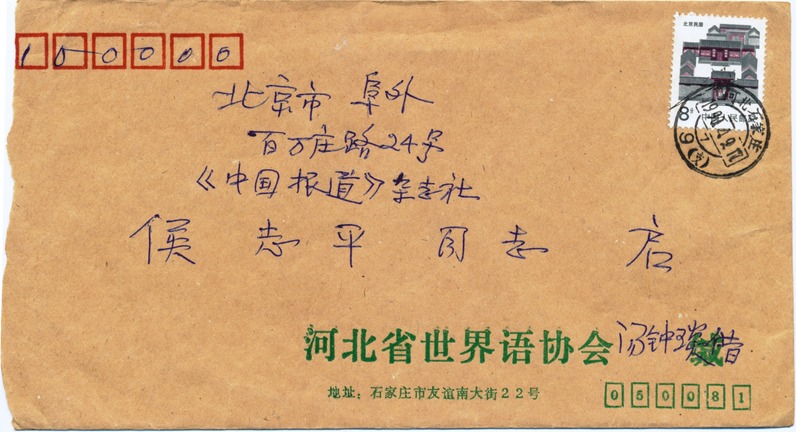 100000
北京民居
8分
中国人民邮政
河北石家庄
北京市 阜外
百万庄路24号
《中国报道》杂志社
侯志平 同志 启
河北省世界语协会
地址：石家庄市友谊南大街22号
050081